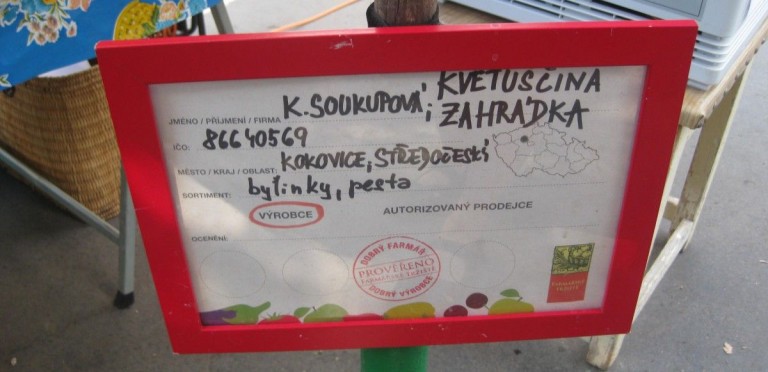 JMÉNO / PŘÍJMENÍ / FIRMA K. SOUKUPOVÁ; KVETUŠČINA ZAHRÁDKA
IČO: 86640569
MĚSTO / KRAJ / OBLAST: KOKOVICE, STŘEDOČESKÝ
SORTIMENT: bylinky, pesta
VÝROBCE AUTORIZOVANÝ PRODEJCE
OCENĚNÍ:
DOBRÝ FARMÁŘ
PROVĚŘENO
FARMÁŘSKÉ TRŽIŠTĚ
DOBRÝ VÝROBCE
FARMÁŘSKÉ
TRŽIŠTĚ